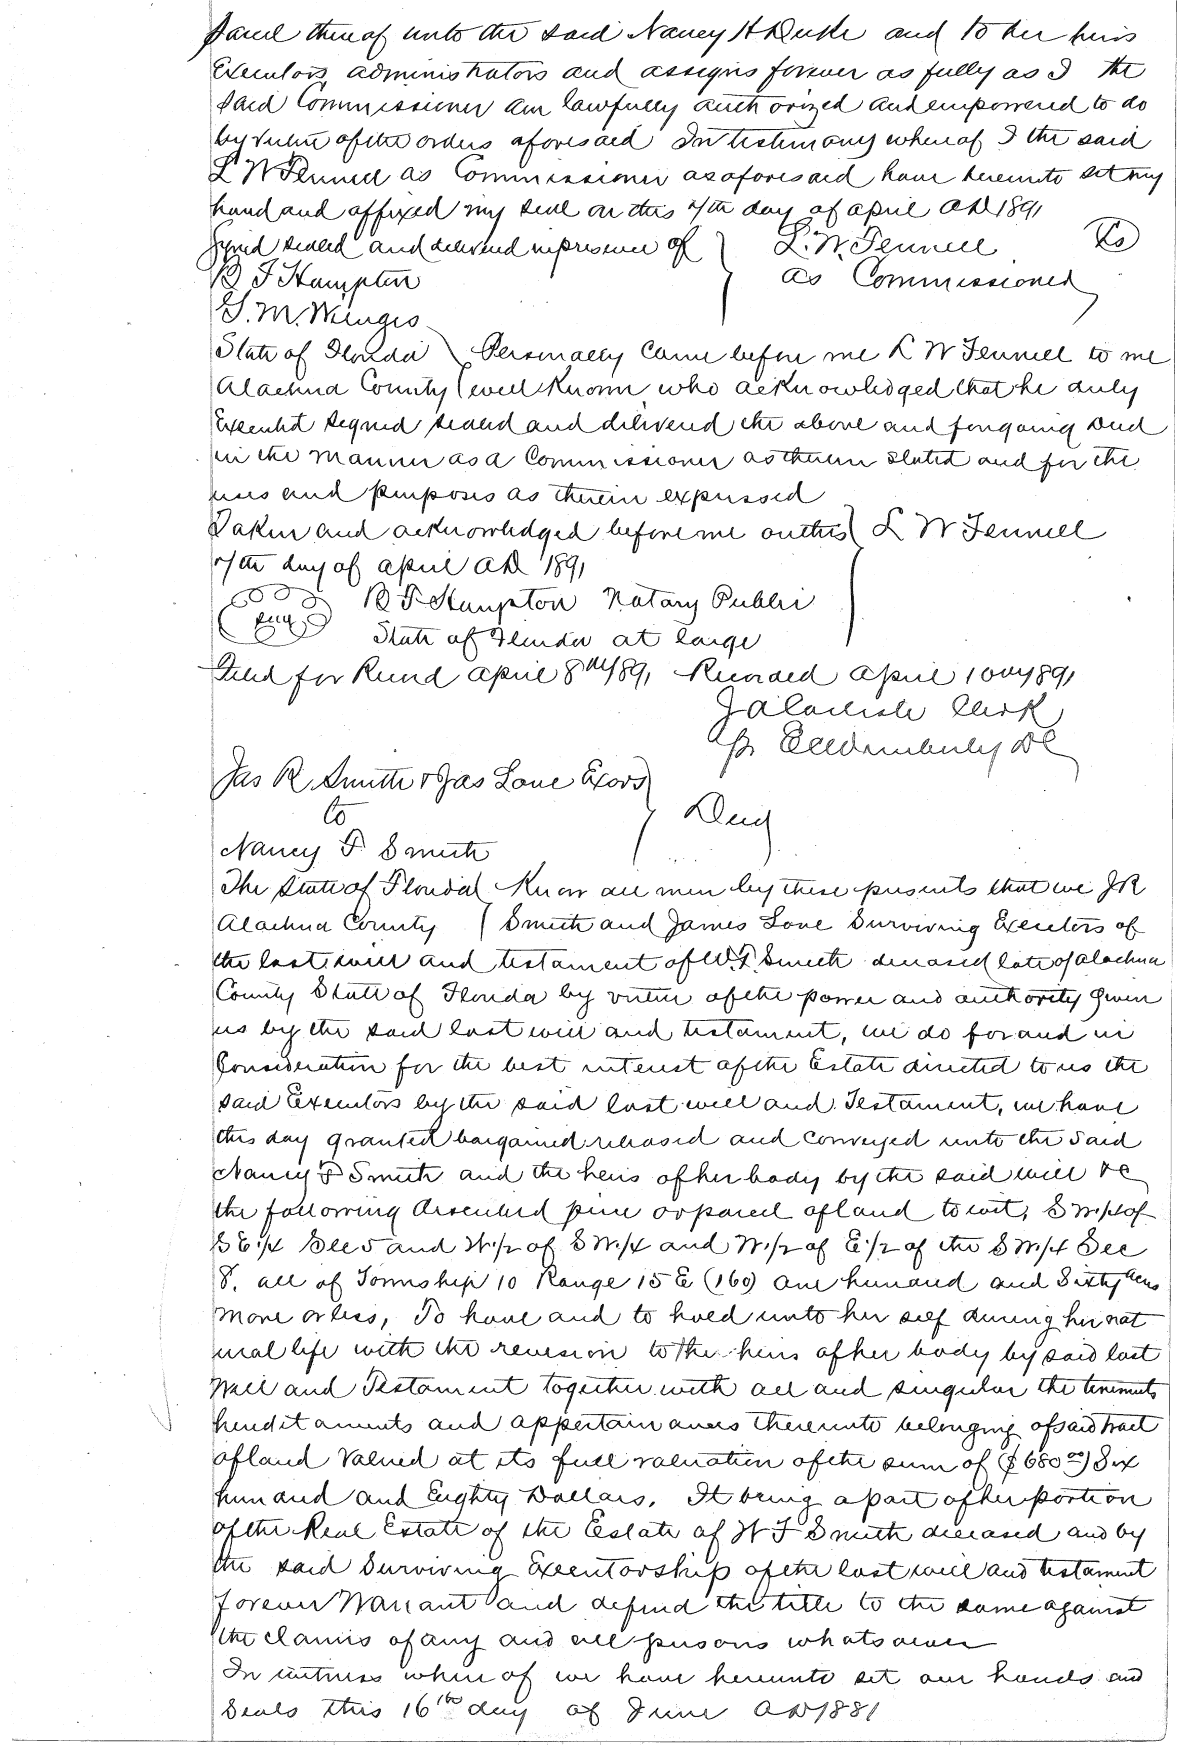 parcel thereof unto the said Nancy H Duke and to her heirs
Executors, administrators and assigns forever as fully as I the
said Commissioner am lawfully authorized and empowered to do
by virtue of the orders aforesaid In testimony whereof I the said
L W Fennell as Commissioner as aforesaid have hereunto set my
hand and affixed my seal on this 7th day of April AD 1891
Signed sealed and delivered in presence of L. W. Fennell Ls
B F Hampton as Commissioner
G. M.
State of Florida Personally came before me L W Fennell to me
Alachua County well known, who acknowledged that he duly
Executed signed sealed and delivered the above and foregoing Deed
in the manner as a Commissioner as therein stated and for the
uses and purposes as therein expressed
Taken and acknowledged before me on this L W Fennell
7th day of April AD 1891
B F Hampton Notary Public
Seal State of Florida at large
Filed for Record April 8th 1891 Recorded April 10th 1891
J A Carlisle Clerk
pr DC
Jas R Smith & Jas Love Exors
to Deed
Nancy F Smith
The State of Florida Know all men by these presents that we JR
Alachua County Smith and James Love Surviving Executors of
the last will and testament of W. F. Smith deceased late of Alachua
County State of Florida by virtue of the power and authority given
us by the said last will and testament, we do for and in
Consideration for the best interest of the Estate directed to us the
said Executors by the said last will and Testament, we have
this day granted bargained released and conveyed unto the said
Nancy F Smith and the heirs of her body by the said will &c
the following described piece or parcel of land to wit, S W 1/4 of
S E 1/4 Sec 5 and W 1/2 of S W 1/4 and W 1/2 of E 1/2 of the S W 1/4 Sec
8. all of Township 10 Range 15 E (160) one hundred and Sixty acres
more or less, To have and to hold unto her self during her nat
ural life with the reversion to the heirs of her body by said last
Will and Testament together with all and singular the tenements
heredit aments and appertain ances thereunto belonging of said tract
of land valued at its full valuation of the sum of ($680 00) Six
hundred and Eighty Dollars. It being a part of her portion
of the Real Estate of the Estate of W F Smith deceased and by
the said Surviving Executorship of the last will and testament
forever Warrant and defend the title to the same against
the claims of any and all persons whatsoever
In witness where of we have hereunto set our hands and
Seals this 16th day of June AD 1881